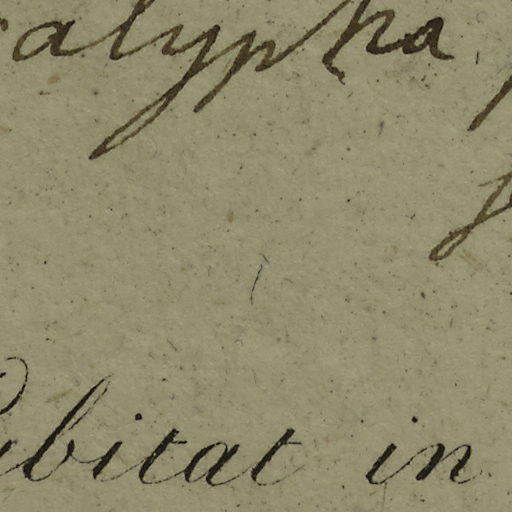 calypha
Habitat in